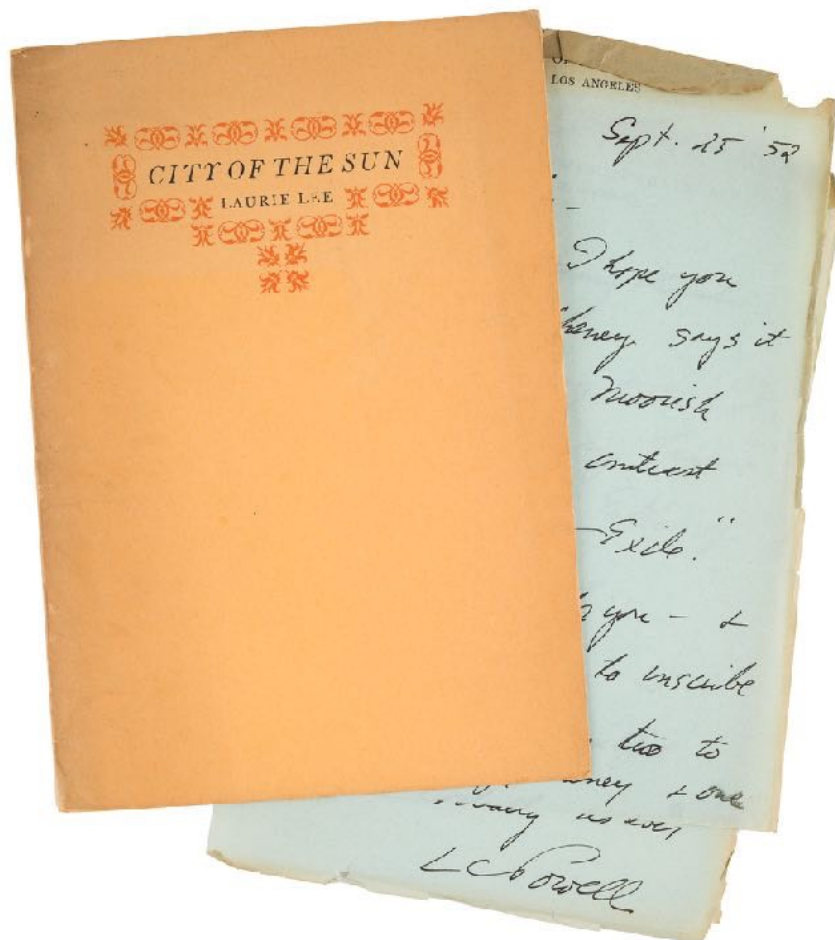 CITY OF THE SUN
LAURIE LEE
LOS ANGELES
Sept. 25 '52
I hope you
says it
Moorish
contrast
Exile."
you - &
to inscribe
too to
& one
as ever
LC Powell